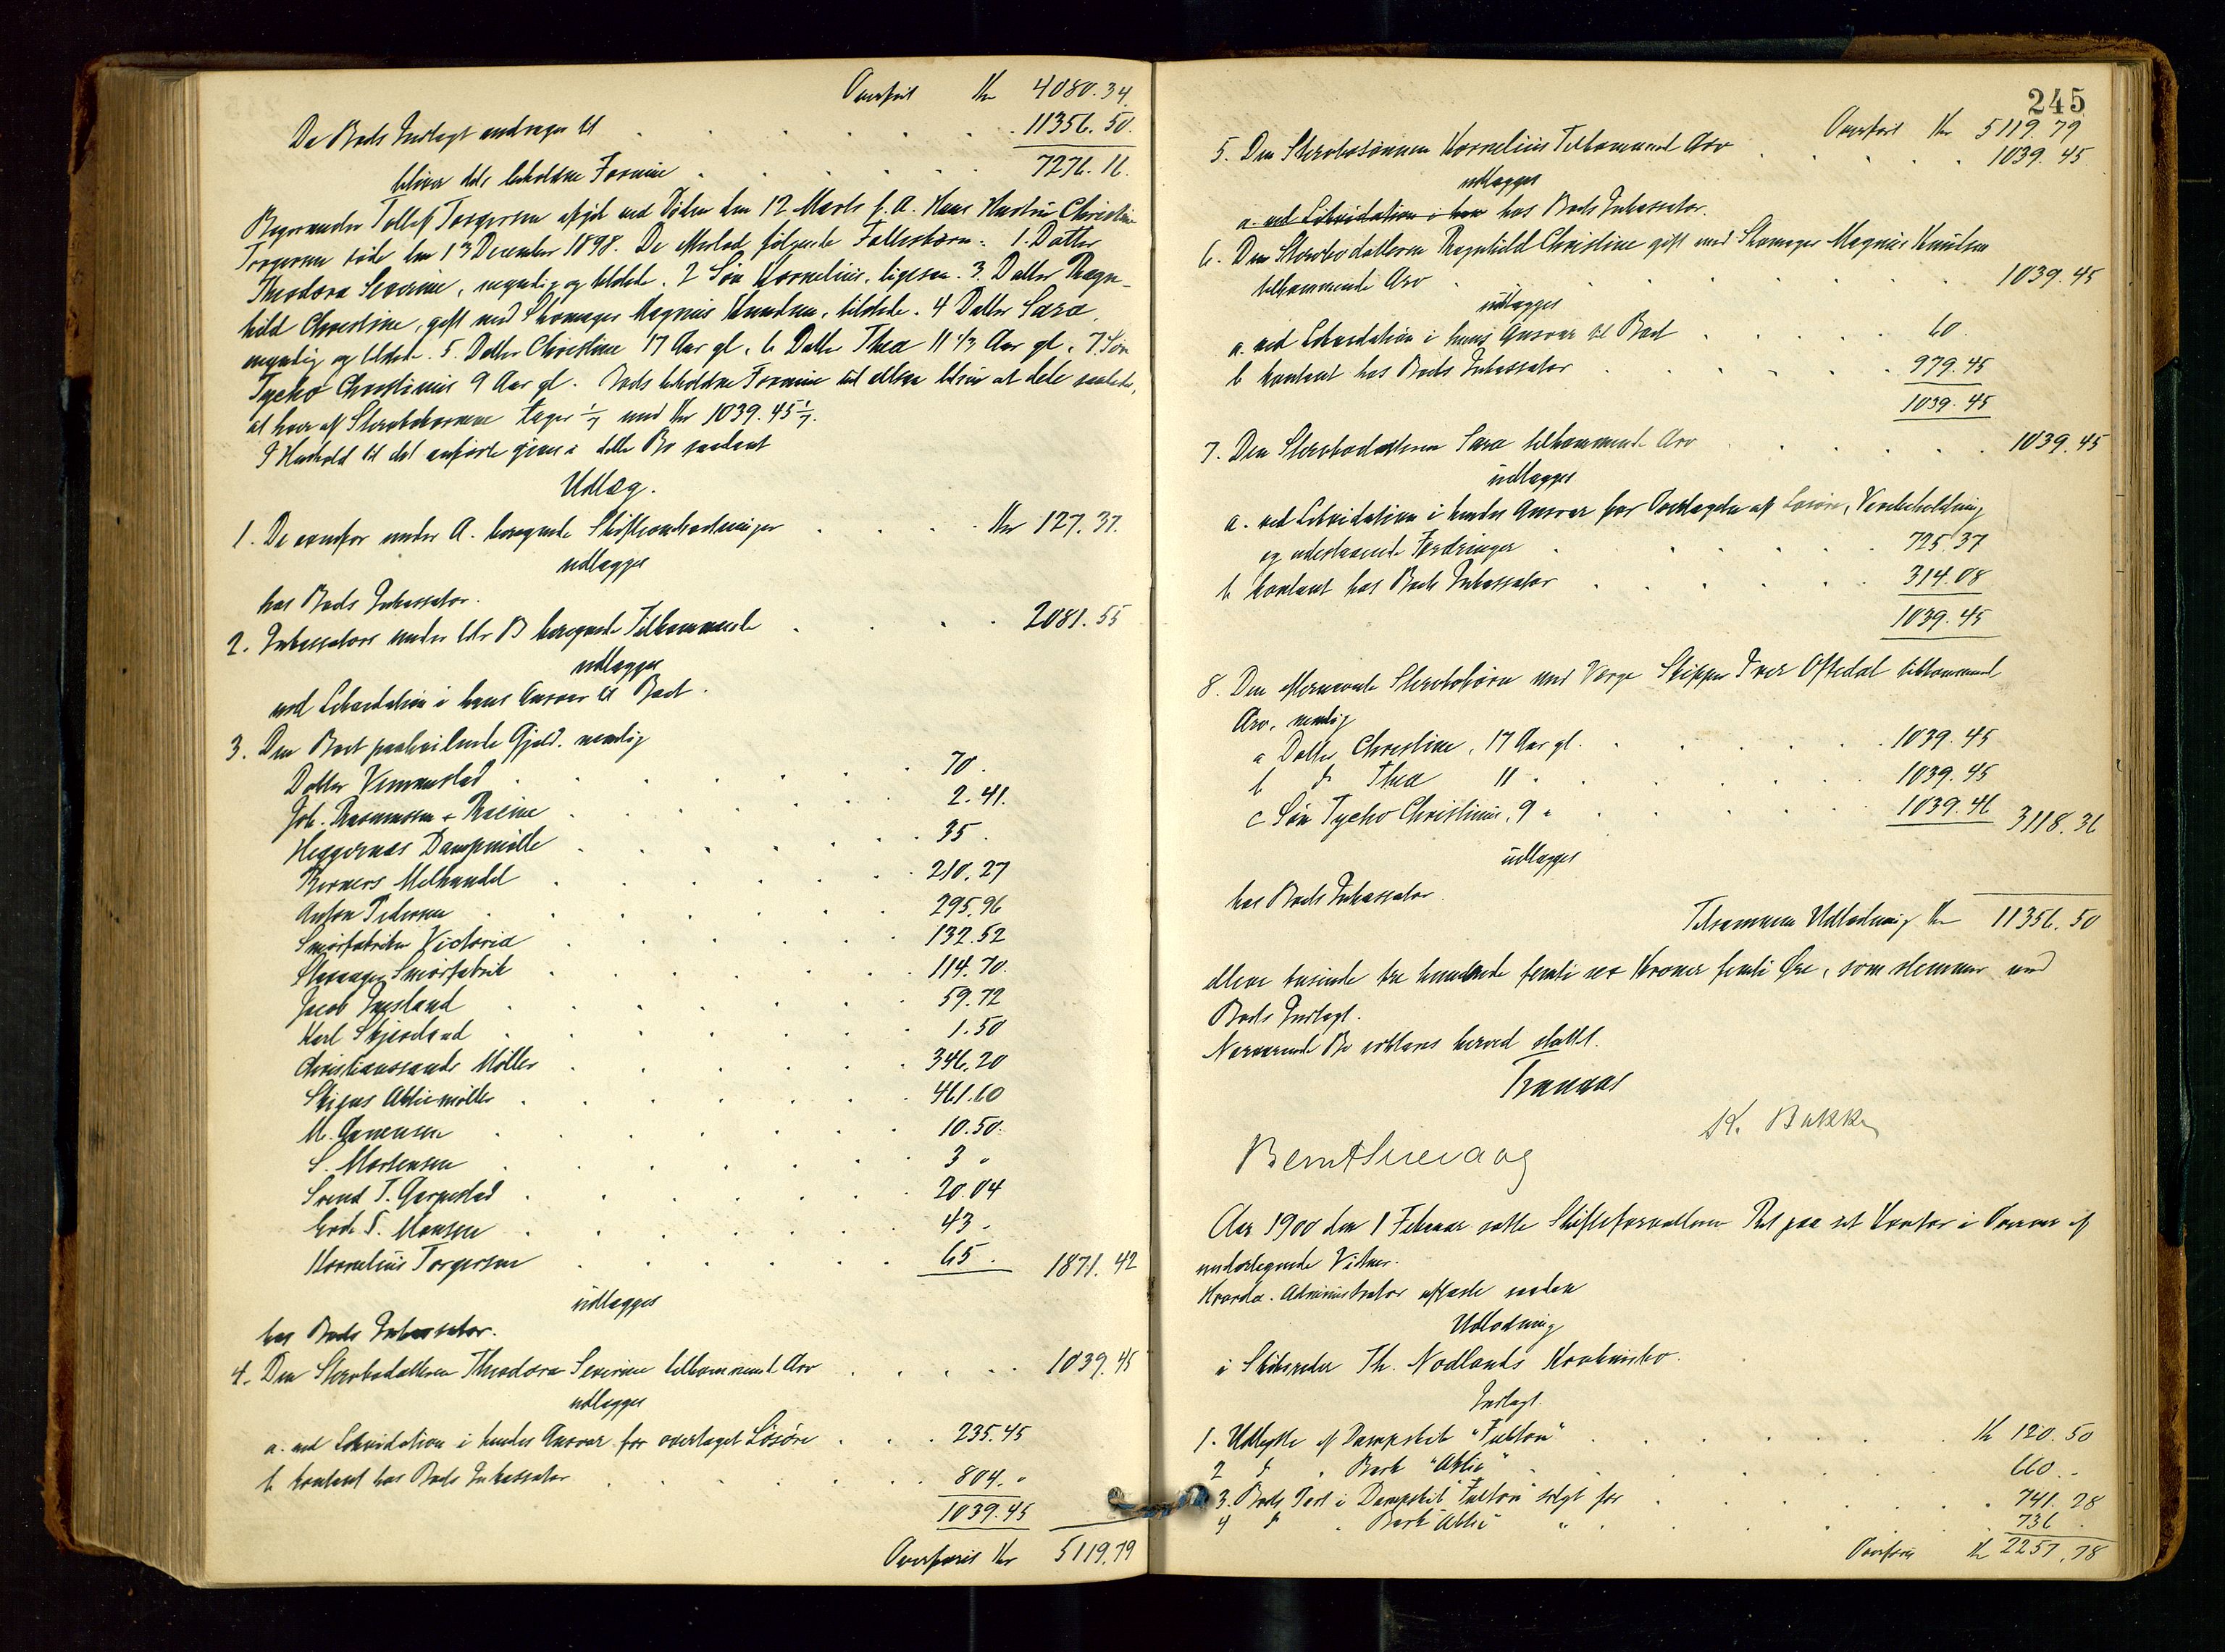 Overført Kr 4080.34.
Da Boets Indtægt andrager til 11356.50.
bliver dets beholdne Formue 7276.16.
Bagermester Tollef Torgersen afgik ved Døden den 12 Marts f. A. Hans Hustru Christine
Torgersen døde den 13 December 1898. De efterlod følgende Fællesbørn: 1. Datter
Theodora Severine, myndig og tilstede. 2 Søn Kornelius, ligesaa. 3. Datter Ragn-
hild Christine, gift med Skomager Magnus Knudsen, tilstede. 4 Datter Sara,
myndig og tilstede. 5. Datter Christine 17 Aar gl. 6 Datter Thea 11 1/2 Aar gl. 7. Søn
Tycho Christinius 9 Aar gl. Boets beholdne Formue vil altsaa blive at dele saaledes,
at hver af Sterbobørnene tager 1/7 med Kr 1039.45 1/7.
I Henhold til det anførte gives i dette Bo saadant
Udlæg.
1. De ovenfor under A. beregnede Skifteomkostninger Kr 127.37.
udlægges
hos Boets Inkassator.
2. Inkassators under Litr B beregnede Tilkommende 2081.55
udlægges
ved Likvidation i hans Ansvar til Boet.
3. Den Boet paahvilende Gjæld. nemlig
Doktor Vennesland 70.
Joh. Rasmussen & Racine 2.41.
Heggernæs Dampmølle 35.
Berners Melhandel 210.27
Anton Pedersen 295.96
Smørfabriken Victoria 132.52
Stavanger Smørfabrik 114.70.
Jacob Ingsland 59.72
Karl Skjævland 1.50
Christianssands Møller 346.20
Skiens Aktiemølle 461.60
M. Gannesen 10.50.
S. Mortensen 3 "
Svend T. Garpestad 20.04
Endr. S. Hansen 43 -
Kornelius Torgersen 65. 1871.42
udlægges
hos Boets Inkassator.
4. Den Sterbodatteren Theodora Severine tilkommend. Arv 1039.45
udlægges
a. ved Likvidation i hendes Ansvar for overtaget Løsøre 235.45
b kontant hos Boets Inkassator 804. "
1039.45
Overføres Kr 5119.79
245
Overført Kr 5119.79
5. Den Sterbosønnen Kornelius Tilkommend Arv 1039.45
udlægges
a. ved Likvidation i han hos Boets Inkassator.
6. Den Sterbodatteren Ragnhild Christine gift med Skomager Magnus Knudsen
tilkommende Arv 1039.45
udlægges
a. ved Likvidation i hens Ansvar til Boet 60.
b kontant hos Boets Inkassator 979.45
1039.45
7. Den Sterbodatteren Sara tilkommend Arv 1039.45
udlægges
a. ved Likvidation i hendes Ansvar for Overtagelse af Løsøre, Varebeholdning
og udestaaende Fordringer 725.37
b kontant hos Boets Inkassator 314.08
1039.45
8. Den efternævnte Sterbobørn med Værge Skipper Iver Oftedal tilkommend
Arv, nemlig
a Datter Christine, 17 Aar gl. 1039.45
b do Thea 11 " 1039.45
c Søn Tycho Christinius, 9 " 1039.46 3118.36
udlægges
hos Boets Inkassator.
Tilsammen Udlodning Kr 11356.50
elleve tusinde tre hundrede femti sex Kroner femti Øre, som stemmer med
Boets Indtægt.
Nærværende Bo erklæres herved sluttet.
Trannæs
K. Bakke
Bernt Sirevaag
Aar 1900 den 1 Februar satte Skifteforvalteren Ret paa sit Kontor i Overvær af
undertegnede Vidner.
Hvorda. Administrator afsagde saadan
Udlodning
i Skibsreder Th. Nodlands Konkursbo.
Indtægt.
1. Udbytte af Dampskib "Fulton" Kr 120.50
2 do " Bark "Aktiv" 660.-
3. Boets Part i Dampskib "Fulton" solgt for 741.28
4 do " Bark "Aktiv" " 736.
Overføres Kr 2257.78